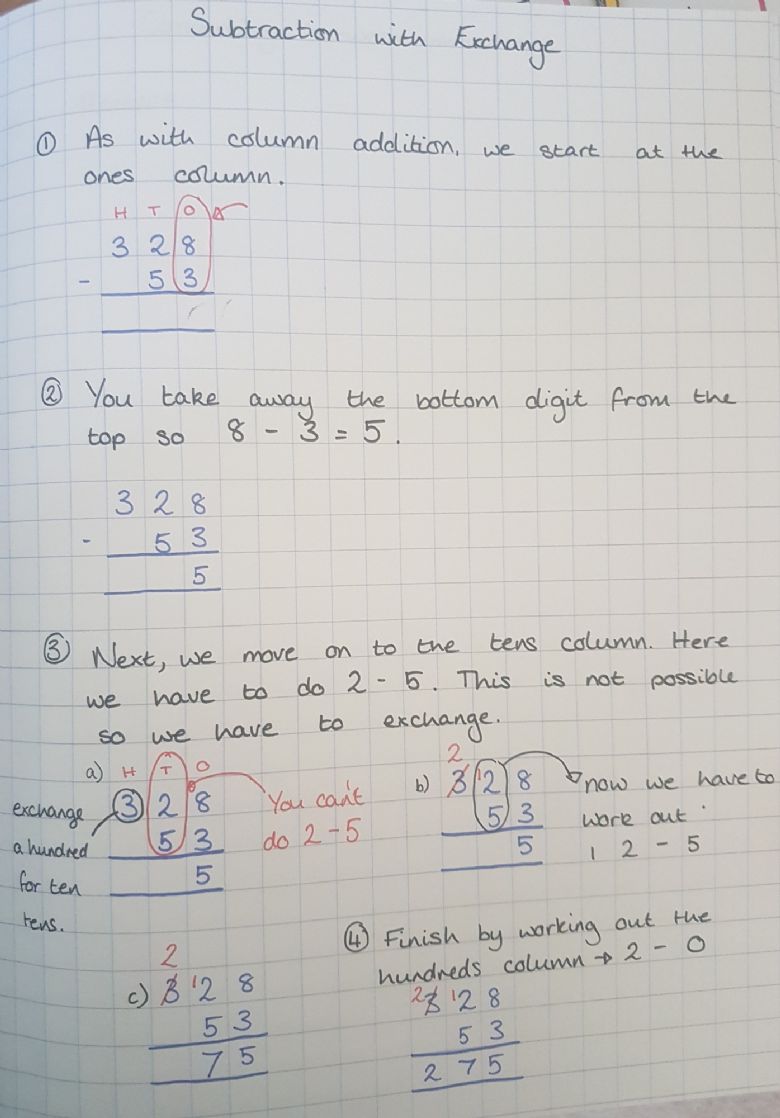 Subtraction with Exchange
① As with column addition, we start at the
ones column.
H T O
3 2 8
- 5 3
② You take away the bottom digit from the
top so 8 - 3 = 5.
3 2 8
- 5 3
5
③ Next, we move on to the tens column. Here
we have to do 2 - 5. This is not possible
so we have to exchange.
a) H T O
3 2 8
5 3
5
exchange
a hundred
for ten
tens.
You can't
do 2 - 5
2
b) 3 12 8
5 3
5
now we have to
work out
1 2 - 5
2
c) 3 12 8
5 3
7 5
④ Finish by working out the
hundreds column → 2 - 0
2 3 12 8
5 3
2 7 5